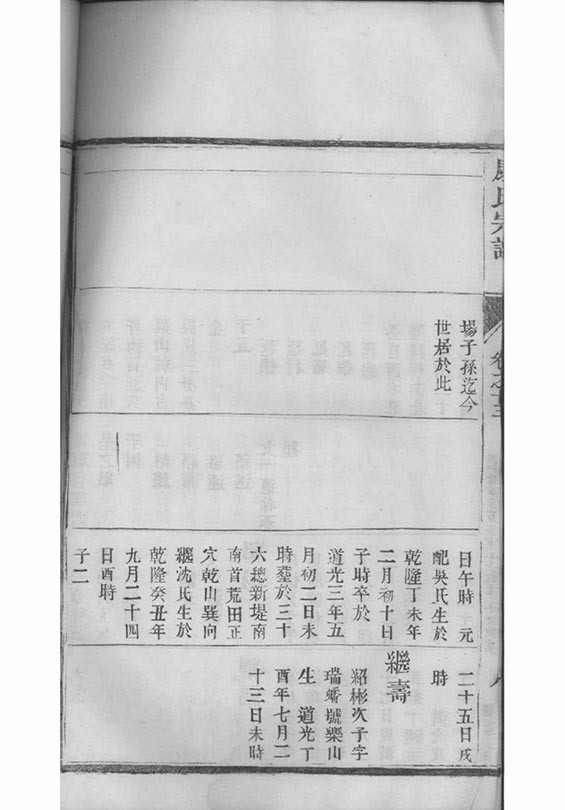 氏宗譜
卷之十三
八
場子孫迄今
世居於此
日午時 元
配吳氏生於
乾隆丁未年
二月初十日
子時卒於
道光三年五
月初二日未
時塟於三十
六總新堤南
南首荒田正
穴乾山巽向
繼沈氏生於
乾隆癸丑年
九月二十四
日酉時
子二
二十五日戌
時
繼壽
紹彬次子字
瑞蟠號樂山
生 道光丁
酉年七月二
十三日未時